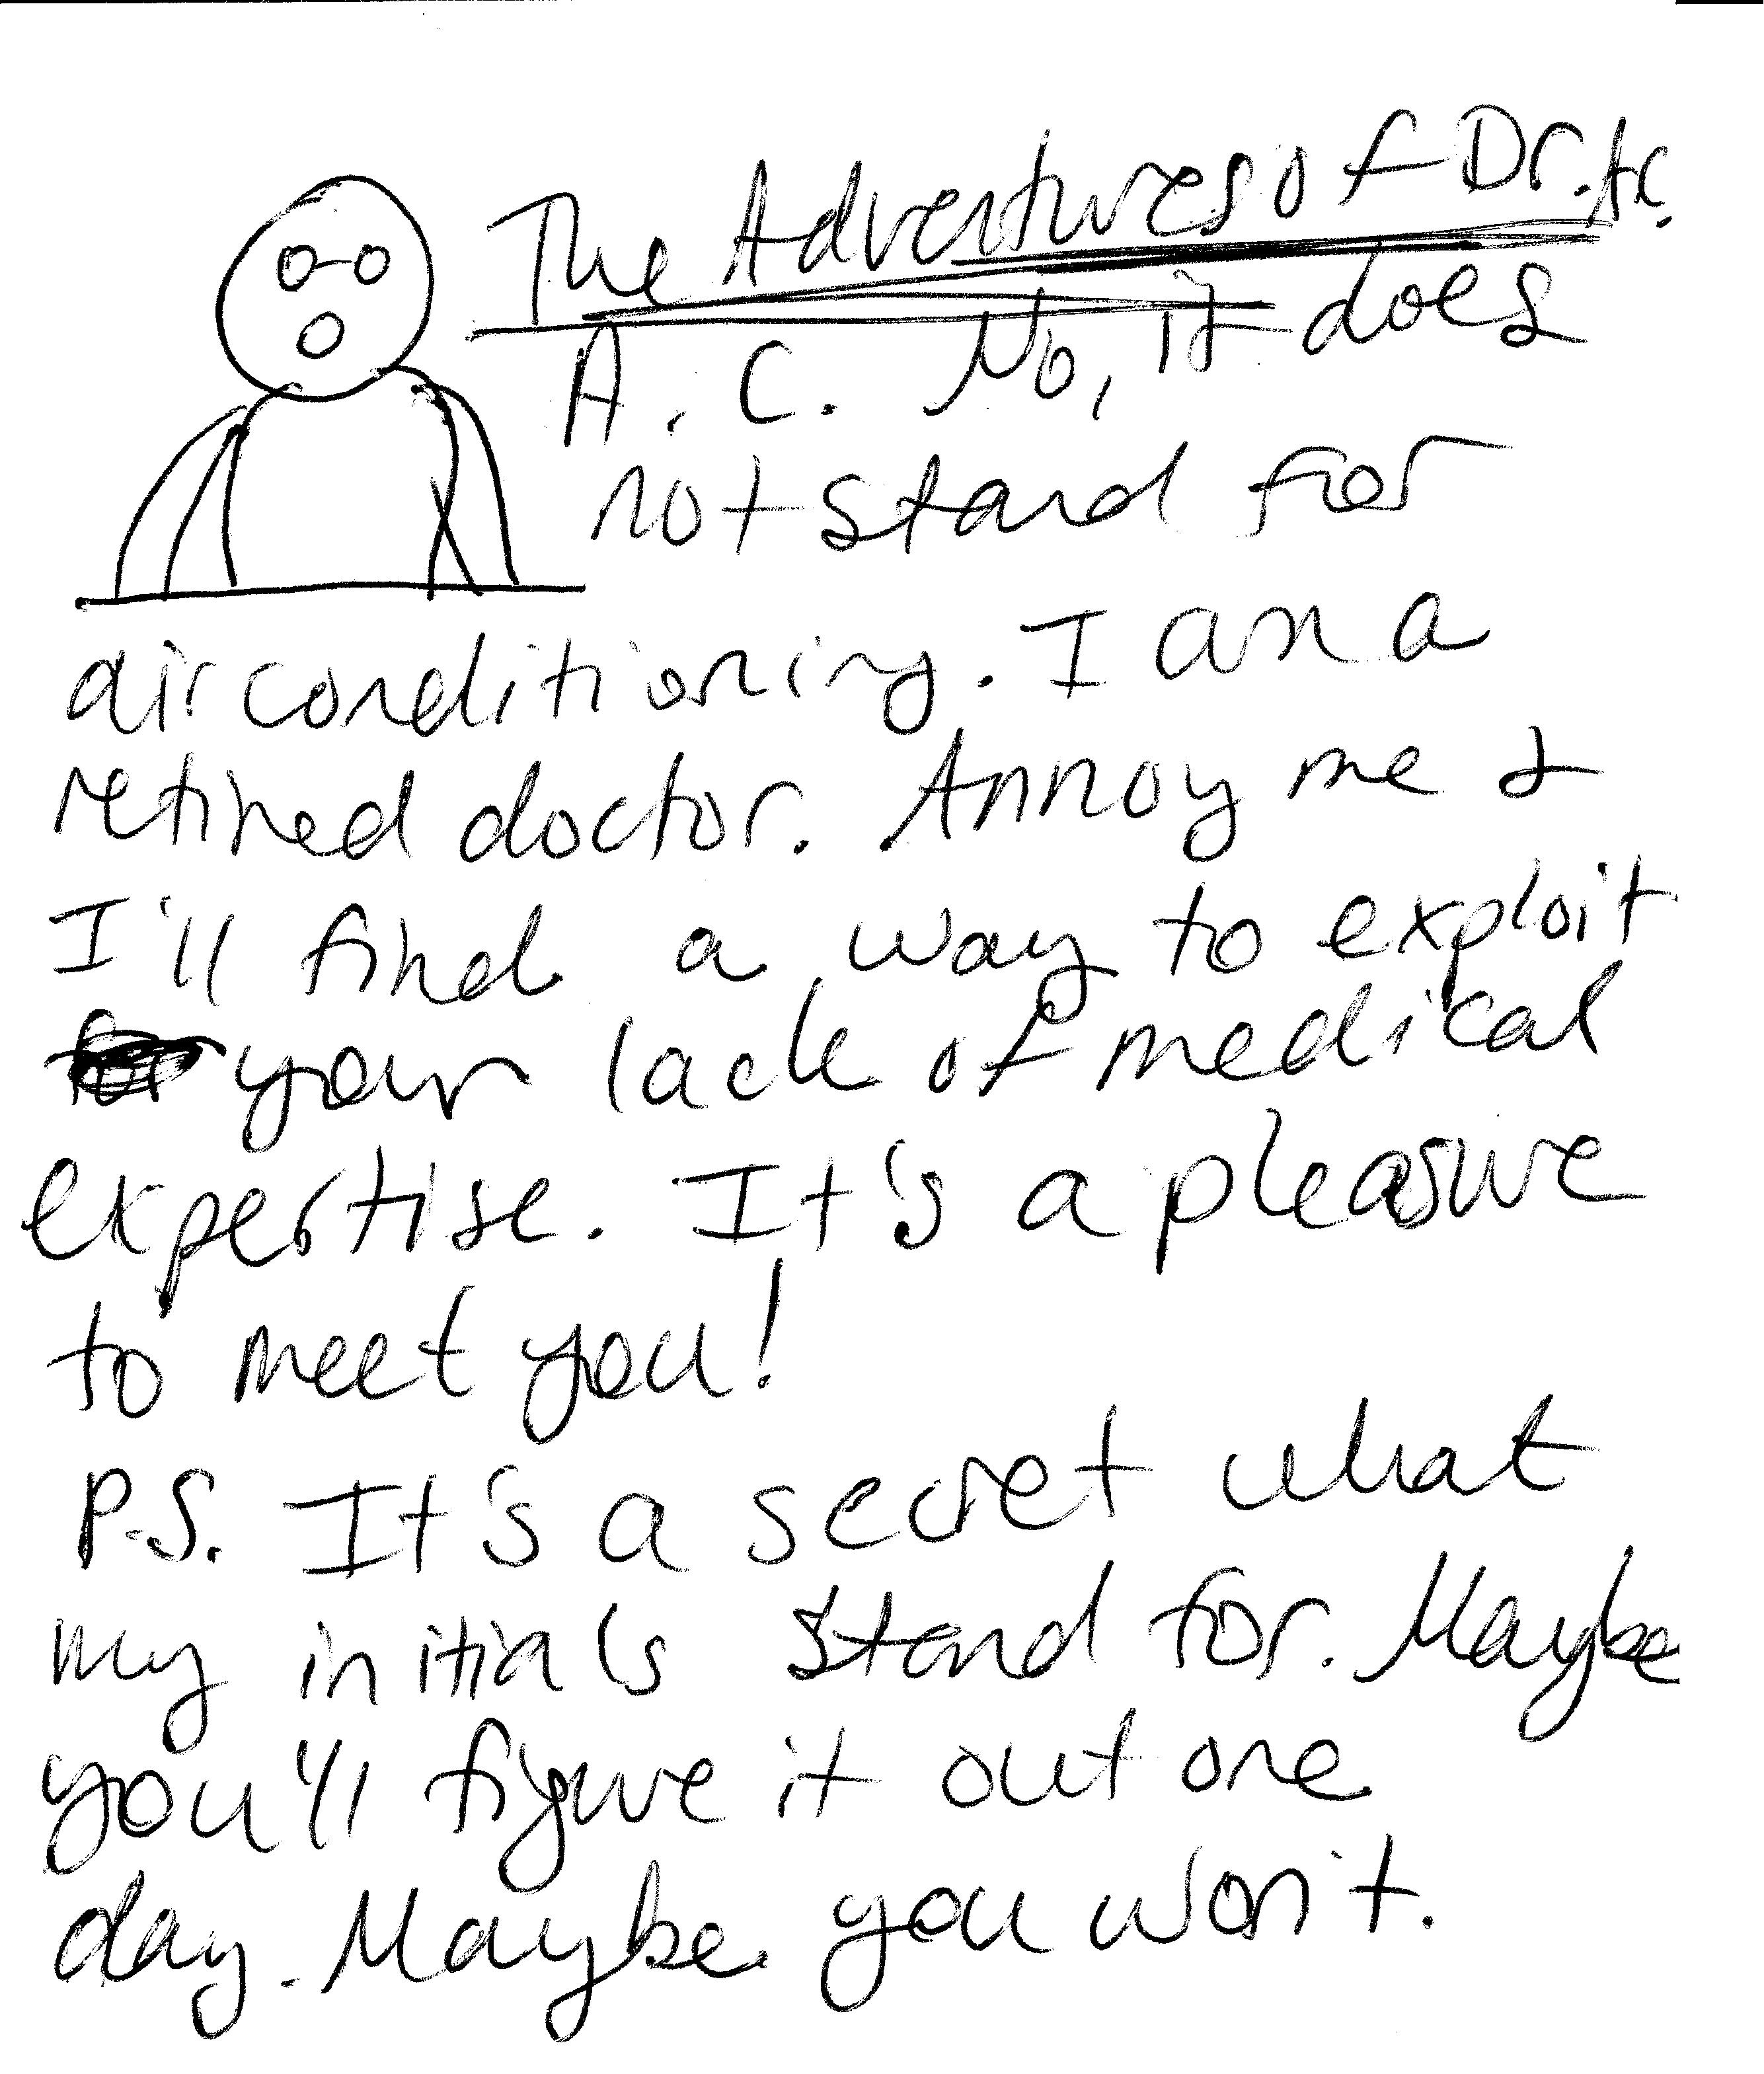 The Adventures of Dr. A.C.
A. C. No, it does
not stand for
air conditioning. I am a
retired doctor. Annoy me &
I'll find a way to exploit
your lack of medical
expertise. It's a pleasure
to meet you!
P.S. It's a secret what
my initials stand for. Maybe
you'll figure it out one
day. Maybe you won't.